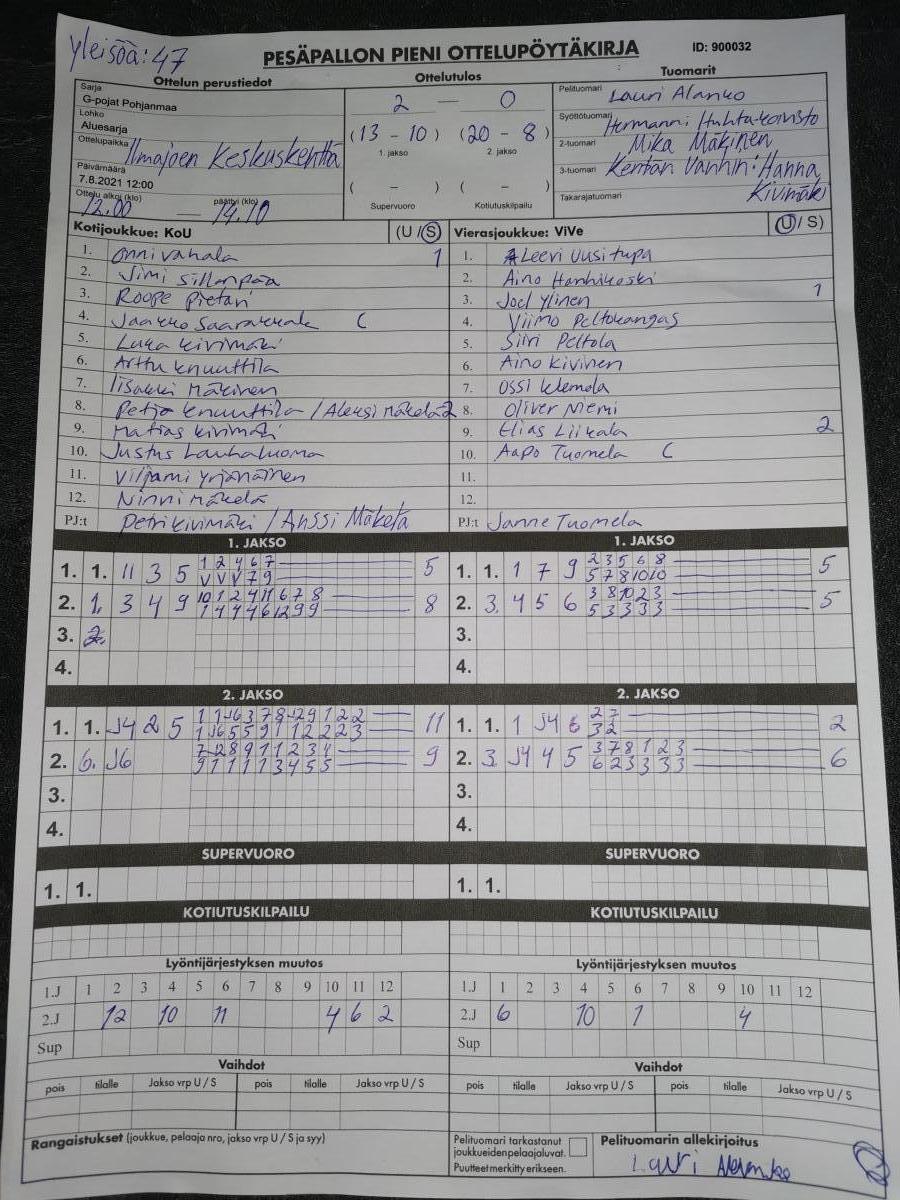 yleisöä: 47
PESÄPALLON PIENI OTTELUPÖYTÄKIRJA
ID: 900032
Ottelun perustiedot
Ottelutulos
Tuomarit
Sarja
G-pojat Pohjanmaa
Lohko
Aluesarja
Ottelupaikka Ilmajoen Keskuskenttä
Päivämäärä
7.8.2021 12:00
Ottelu alkoi (klo) päättyi (klo)
12.00 — 14.10
2 — 0
(13 - 10) (20 - 8)
1. jakso 2. jakso
( - ) ( - )
Supervuoro Kotiutuskilpailu
Pelituomari Lauri Alanko
Syöttötuomari Hermanni Huhta-koivisto
2-tuomari Mika Mäkinen
3-tuomari Kentän Vanhin: Hanna
Takarajatuomari Kivimäki
Kotijoukkue: KoU (U / S)
1. Onni vahala 1
2. Simi sillanpää
3. Roope pietari
4. Jaakko Saarakkala C
5. Luka kivimäki
6. Arttu knuuttila
7. Iisakki Mäkinen
8. Petja knuuttila / Aleksi Mäkelä 2
9. Matias kivimäki
10. Justus Lauhaluoma
11. Viljami Yrjänäinen
12. Ninni mäkelä
PJ:t Petri kivimäki / Anssi Mäkelä
Vierasjoukkue: ViVe (U / S)
1. Leevi Uusitupa
2. Aino Hanhikoski
3. Joel Ylinen 1
4. Viimo Peltokangas
5. Siiri Peltola
6. Aino Kivinen
7. Ossi Kelemola
8. Oliver Niemi
9. Elias Liikala 2
10. Aapo Tuomela C
11.
12.
PJ:t Janne Tuomela
1. JAKSO
1. 1. 11 3 5 1 2 4 6 7 5
V V V 7 9
2. 1. 3 4 9 10 1 2 4 11 6 7 8 8
1 4 4 4 6 12 9 9
3. 2.
4.
1. JAKSO
1. 1. 1 7 9 2 3 5 6 8 5
5 7 8 10 10
2. 3. 4 5 6 3 8 10 2 3 5
5 3 3 3 3
3.
4.
2. JAKSO
1. 1. J4 2 5 11
2. 6. J6 9
3.
4.
2. JAKSO
1. 1. 1 J4 6 2 7 2
3 2
2. 3. J4 4 5 3 7 8 1 2 3 6
6 2 3 3 3 3
3.
4.
SUPERVUORO
1. 1.
SUPERVUORO
1. 1.
KOTIUTUSKILPAILU
KOTIUTUSKILPAILU
Lyöntijärjestyksen muutos
1.J 1 2 3 4 5 6 7 8 9 10 11 12
2.J 12 10 11 4 6 2
Sup
Lyöntijärjestyksen muutos
1.J 1 2 3 4 5 6 7 8 9 10 11 12
2.J 6 10 1 4
Sup
Vaihdot
pois tilalle Jakso vrp U / S pois tilalle Jakso vrp U / S
Vaihdot
pois tilalle Jakso vrp U / S pois tilalle Jakso vrp U / S
Rangaistukset (joukkue, pelaaja nro, jakso vrp U / S ja syy)
Pelituomari tarkastanut
joukkueidenpelaajaluvat.
Puutteet merkitty erikseen.
Pelituomarin allekirjoitus
Lauri Alanko